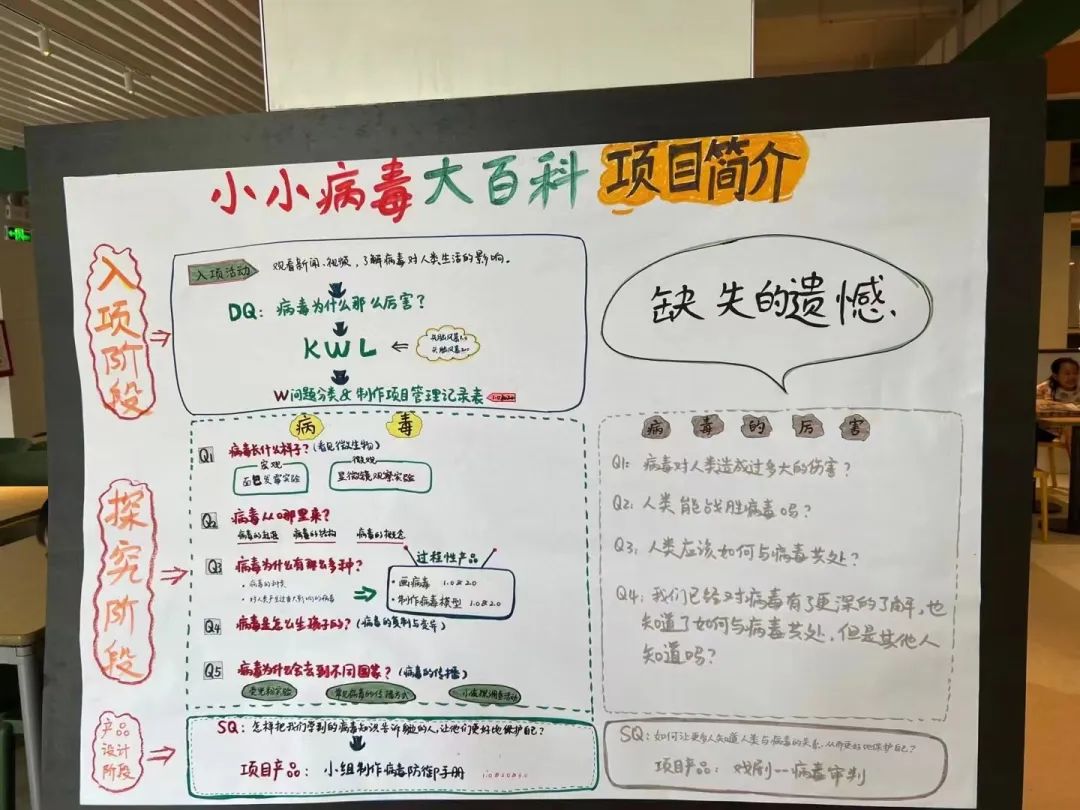 小小病毒大百科 项目简介
入项阶段
入项活动 观看新闻、视频，了解病毒对人类生活的影响。
DQ：病毒为什么那么厉害？
KWL
头脑风暴1.0
头脑风暴2.0
W问题分类& 制作项目管理记录表 1.0&2.0
探究阶段
病毒
Q1 病毒长什么样子？(看见微生物)
宏观 微观
面包发霉实验 显微镜观察实验
Q2 病毒从哪里来？
病毒的起源 病毒的结构 病毒的概念
Q3 病毒为什么有那么多种？
·病毒的种类
·对人类产生过重大影响的病毒
过程性产品
·画病毒 1.0&2.0
·制作病毒模型 1.0&2.0
Q4 病毒是怎么生孩子的？(病毒的复制与变异)
Q5 病毒为什么会去到不同国家？(病毒的传播)
荧光粉实验 常见病毒的传播方式 小夜探调查活动
产品设计阶段
SQ：怎样把我们学到的病毒知识告诉他的人，让他们更好地保护自己？
项目产品：小组制作病毒防御手册
缺失的遗憾.
病毒的厉害
Q1：病毒对人类造成过多大的伤害？
Q2：人类能战胜病毒吗？
Q3：人类应该如何与病毒共处？
Q4：我们已经对病毒有了更深的了解，也
知道了如何与病毒共处，但是其他人
知道吗？
SQ：如何让更多人知道人类与病毒的关系，从而更好地保护自己？
项目产品：戏剧--病毒审判